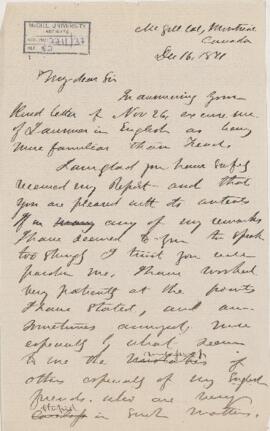 McGILL UNIVERSITY
ARCHIVES
ACC. NO. 2211/37
REF. 62
McGill Col, Montreal
Canada
Dec 16, 1871
My dear Sir
In answering your
kind letter of Nov 26, excuse me
if I answer in English as being
more familiar than French.
I am glad you have safely
received my Report and that
you are pleased with its contents
If in many any of my remarks
I have seemed to you to speak
too strongly I trust you will
pardon me. I have worked
very patiently at the points
I have stated, and am
sometimes annoyed more
especially by what seems
to me the of
others especially of my English
friends who are very
in such matters.